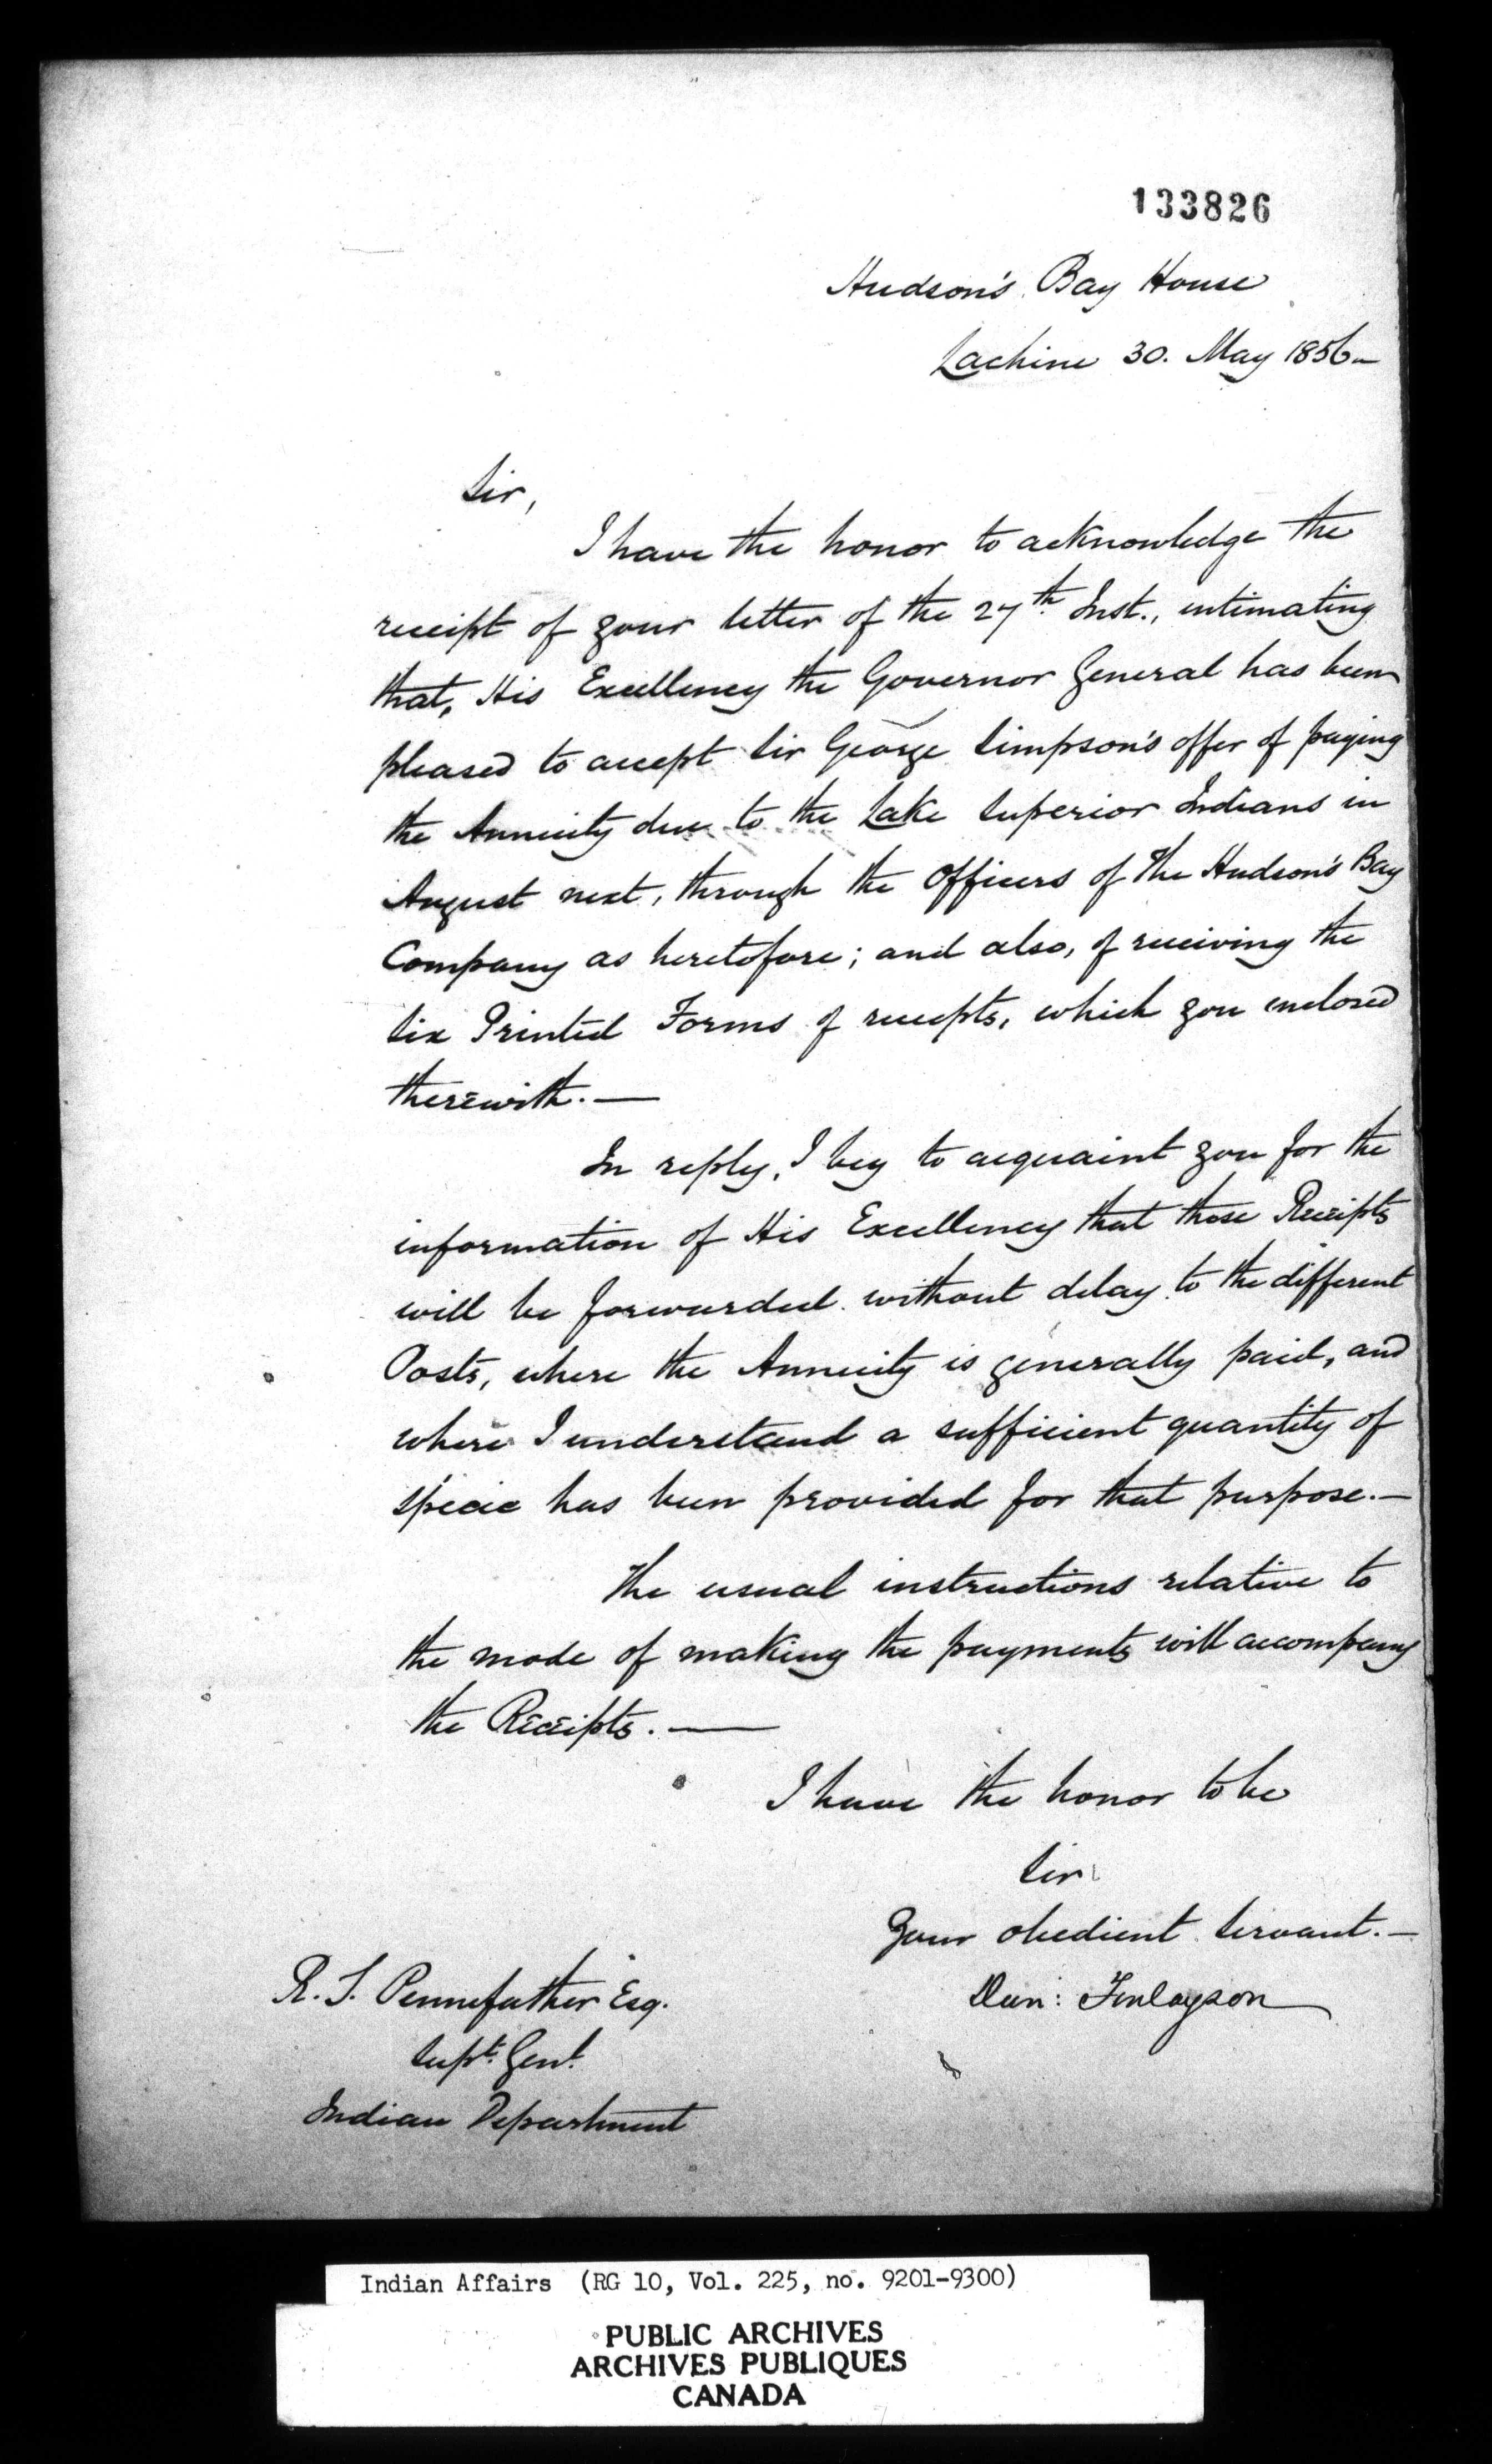 133826
Hudson's Bay House
Lachine 30. May 1856_
Sir,
I have the honor to acknowledge the
receipt of your letter of the 27th. Inst., intimating
that, His Excellency the Governor General has been
pleased to accept Sir George Simpson's offer of paying
the Annuity due to the Lake Superior Indians in
August next, through the Officers of The Hudson's Bay
Company as heretofore; and also, of receiving the
Six Printed Forms of receipts, which you inclosed
therewith.—
In reply, I beg to acquaint you for the
information of His Excellency that those Receipts
will be forwarded without delay to the different
Posts, where the Annuity is generally paid, and
where I understand a sufficient quantity of
specie has been provided for that purpose.—
The usual instructions relative to
the mode of making the payments will accompany
the Receipts.—
I have the honor to be
Sir
Your obedient Servant.—
Dun: Finlayson
R. T. Pennefather Esq.
Supt. Genl.
Indian Department
Indian Affairs (RG 10, Vol. 225, no. 9201-9300)
PUBLIC ARCHIVES
ARCHIVES PUBLIQUES
CANADA